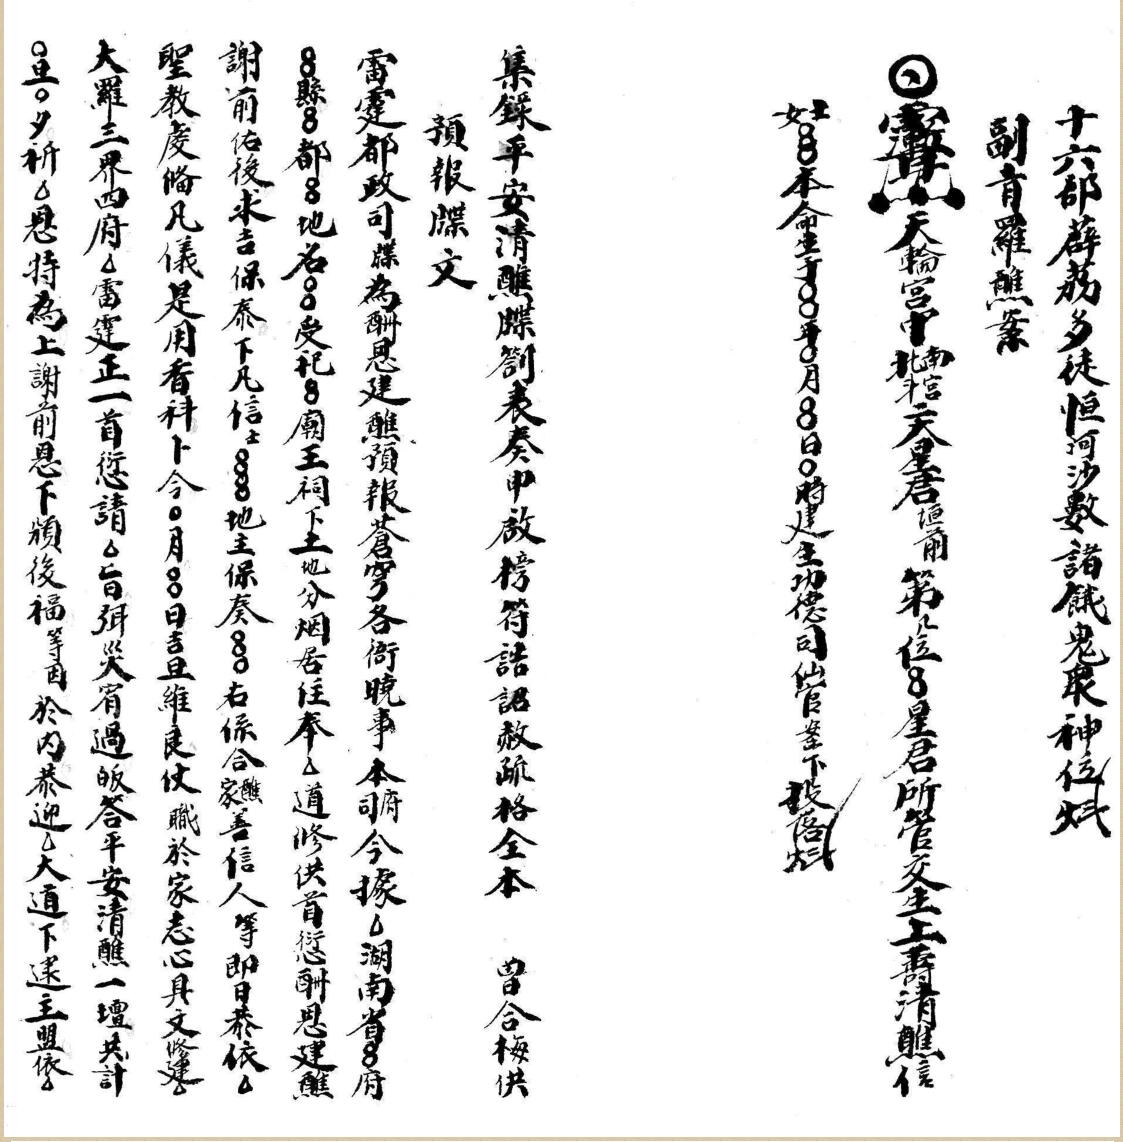 十六部薜茘多徒恒河沙數諸餓鬼衆神位
副青羅醮案
天輪宮中南宮北斗天星君垣前第几位8星君所管交生上壽清醮信
士女8本命生于8年8月8日0時建生功德司仙官案下投落
集錄平安清醮牒劄表奏申啟榜符誥詔赦疏格全本 曾合梅供
預報牒文
雷霆都政司牒為酬恩建醮預報蒼穹各衙曉事本府司今據厶湖南省8府
8縣8都8地名00受祀8廟王祠下土地分烟居住奉厶道修供首愆酬恩建醮
謝前佑後求吉保泰下凡信士888地主保奏880右係合家醮善信人等即日恭依厶
聖教虔脩凡儀是用香科卜今0月00日吉旦維良仗職於家志心具文修建厶
大羅三界四府厶雷霆正一首愆請厶旨弭災宥過皈答平安清醮一壇共計
0旦0夕祈厶恩特為上謝前恩下頒後福等因於內恭迎厶大道下逮主盟依厶